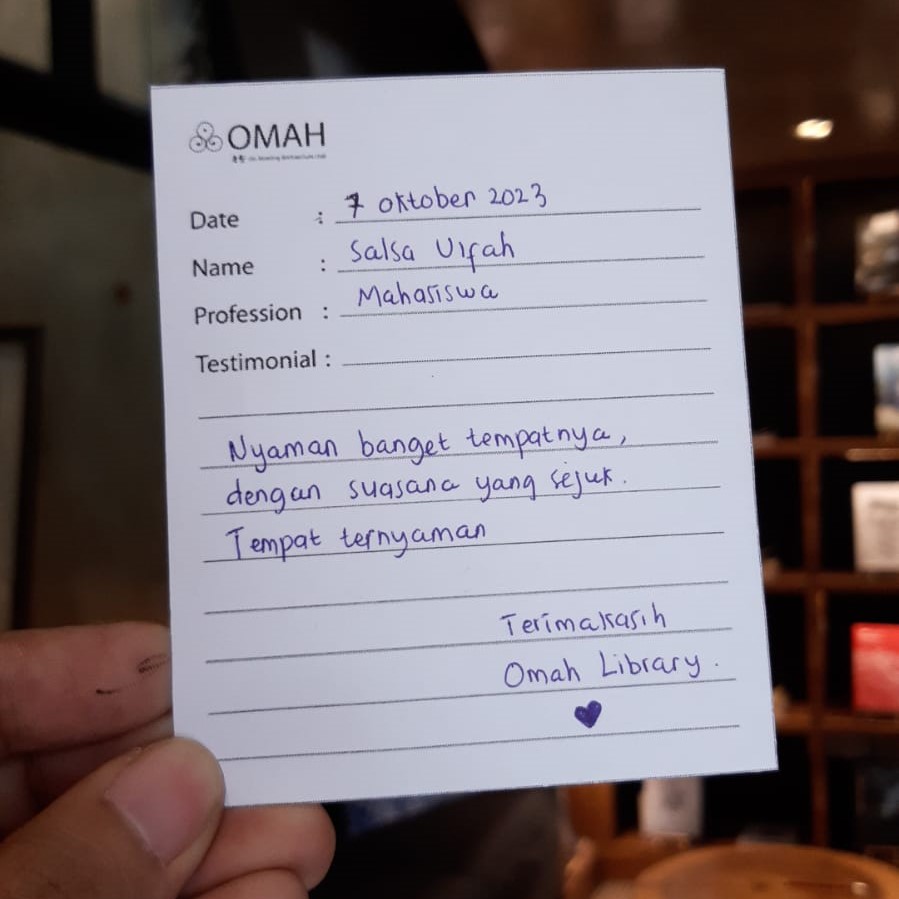 OMAH
Date : 7 oktober 2023
Name : Salsa Ulfah
Profession : Mahasiswa
Testimonial :
Nyaman banget tempatnya,
dengan suasana yang sejuk.
Tempat ternyaman
Terimakasih
Omah Library.